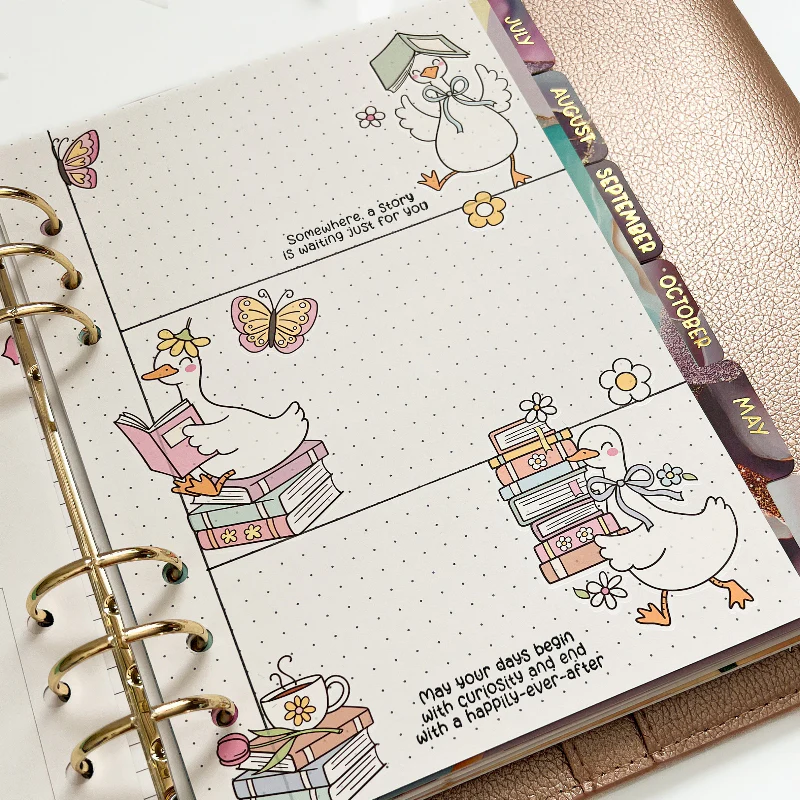 JULY
AUGUST
SEPTEMBER
OCTOBER
MAY
Somewhere, a story
is waiting just for you
May your days begin
with curiosity and end
with a happily-ever-after